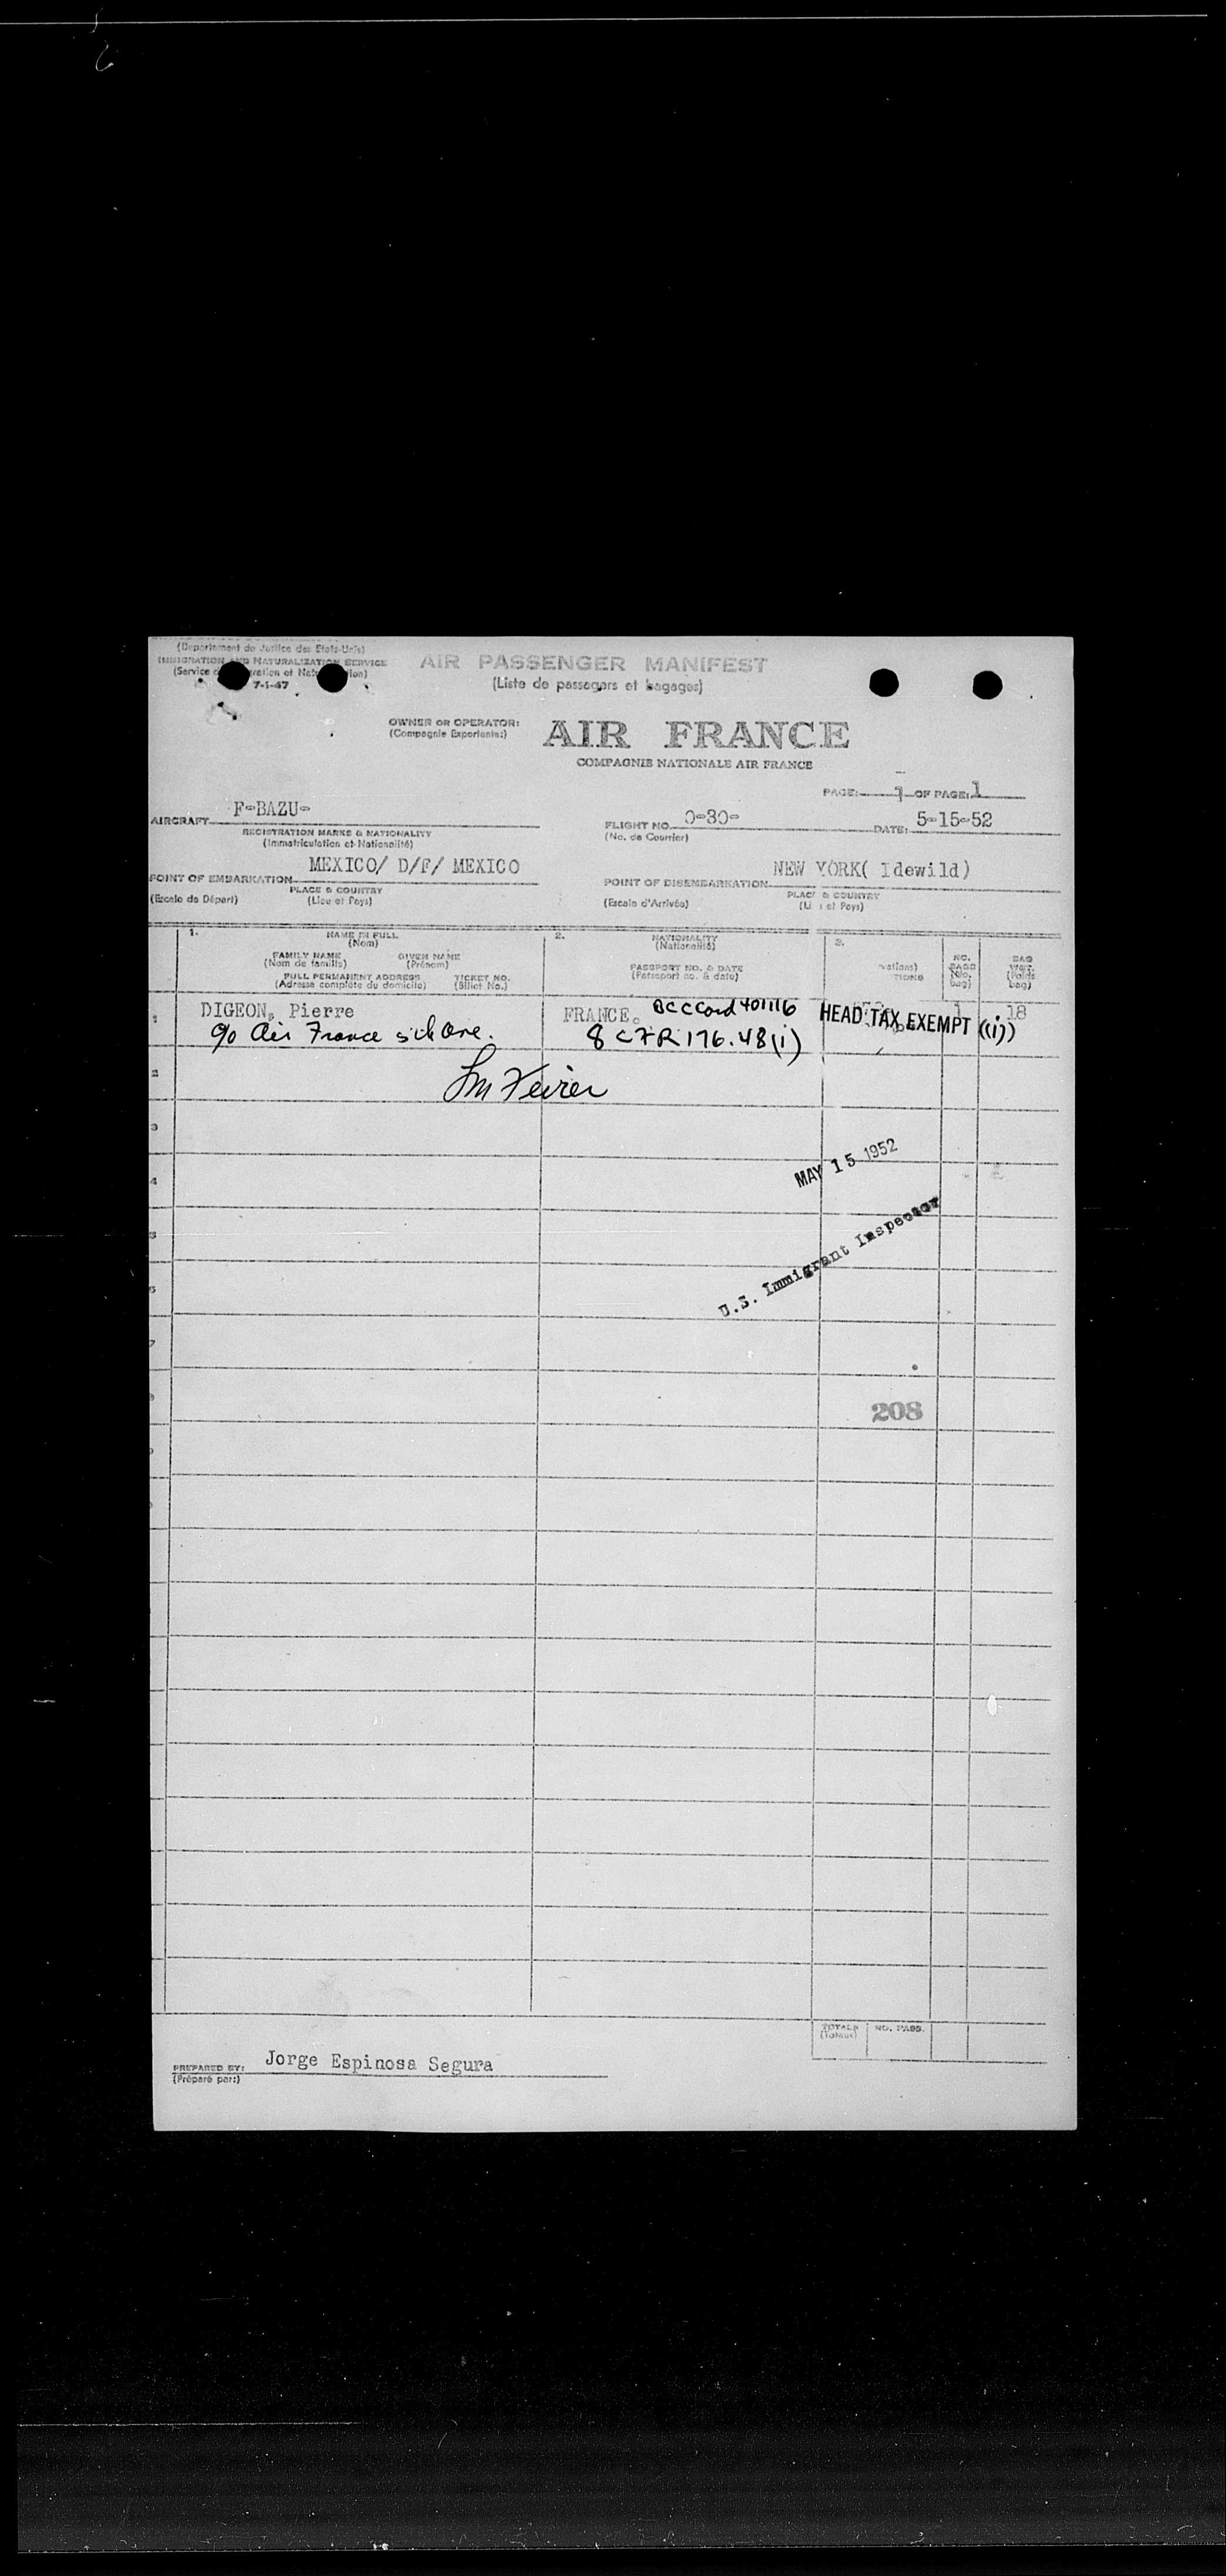 (Department de Justice des Etats-Unis)
IMMIGRATION AND NATURALIZATION SERVICE
(Service
7-1-47
AIR PASSENGER MANIFEST
(Liste de passagers et bagages)
OWNER OR OPERATOR:
(Compagnie Exploitante:)
AIR FRANCE
COMPAGNIE NATIONALE AIR FRANCE
PAGE: 1 OF PAGE: 1
AIRCRAFT F-BAZU-
REGISTRATION MARKS & NATIONALITY
(Immatriculation et Nationalité)
FLIGHT NO. 0-30- DATE: 5-15-52
(No. de Courrier)
POINT OF EMBARKATION MEXICO/ D/F/ MEXICO
PLACE & COUNTRY
(Escale de Départ) (Lieu et Pays)
POINT OF DISEMBARKATION NEW YORK( Idewild)
PLACE & COUNTRY
(Escale d'Arrivée) (Li et Pays)
1. NAME IN FULL
(Nom)
FAMILY NAME GIVEN NAME
(Nom de famille) (Prénom)
FULL PERMANENT ADDRESS TICKET NO.
(Adresse complète du domicile) (Billet No.)
2. NATIONALITY
(Nationalité)
PASSPORT NO. & DATE
(Passeport no. & date)
3.
vations)
TIONS
NO.
BAGS
(No.
bag)
BAG
WGT.
(Poids
bag)
1 DIGEON, Pierre FRANCE. BCC Card 401116 HEAD TAX EXEMPT ((i)) 1 18
c/o Air France 8 CFR 176.48(i)
2
3
MAY 15 1952
4
5
U.S. Immigrant Inspector
6
7
208
TOTALS NO. PASS.
(Totaux)
PREPARED BY: Jorge Espinosa Segura
(Préparé par:)